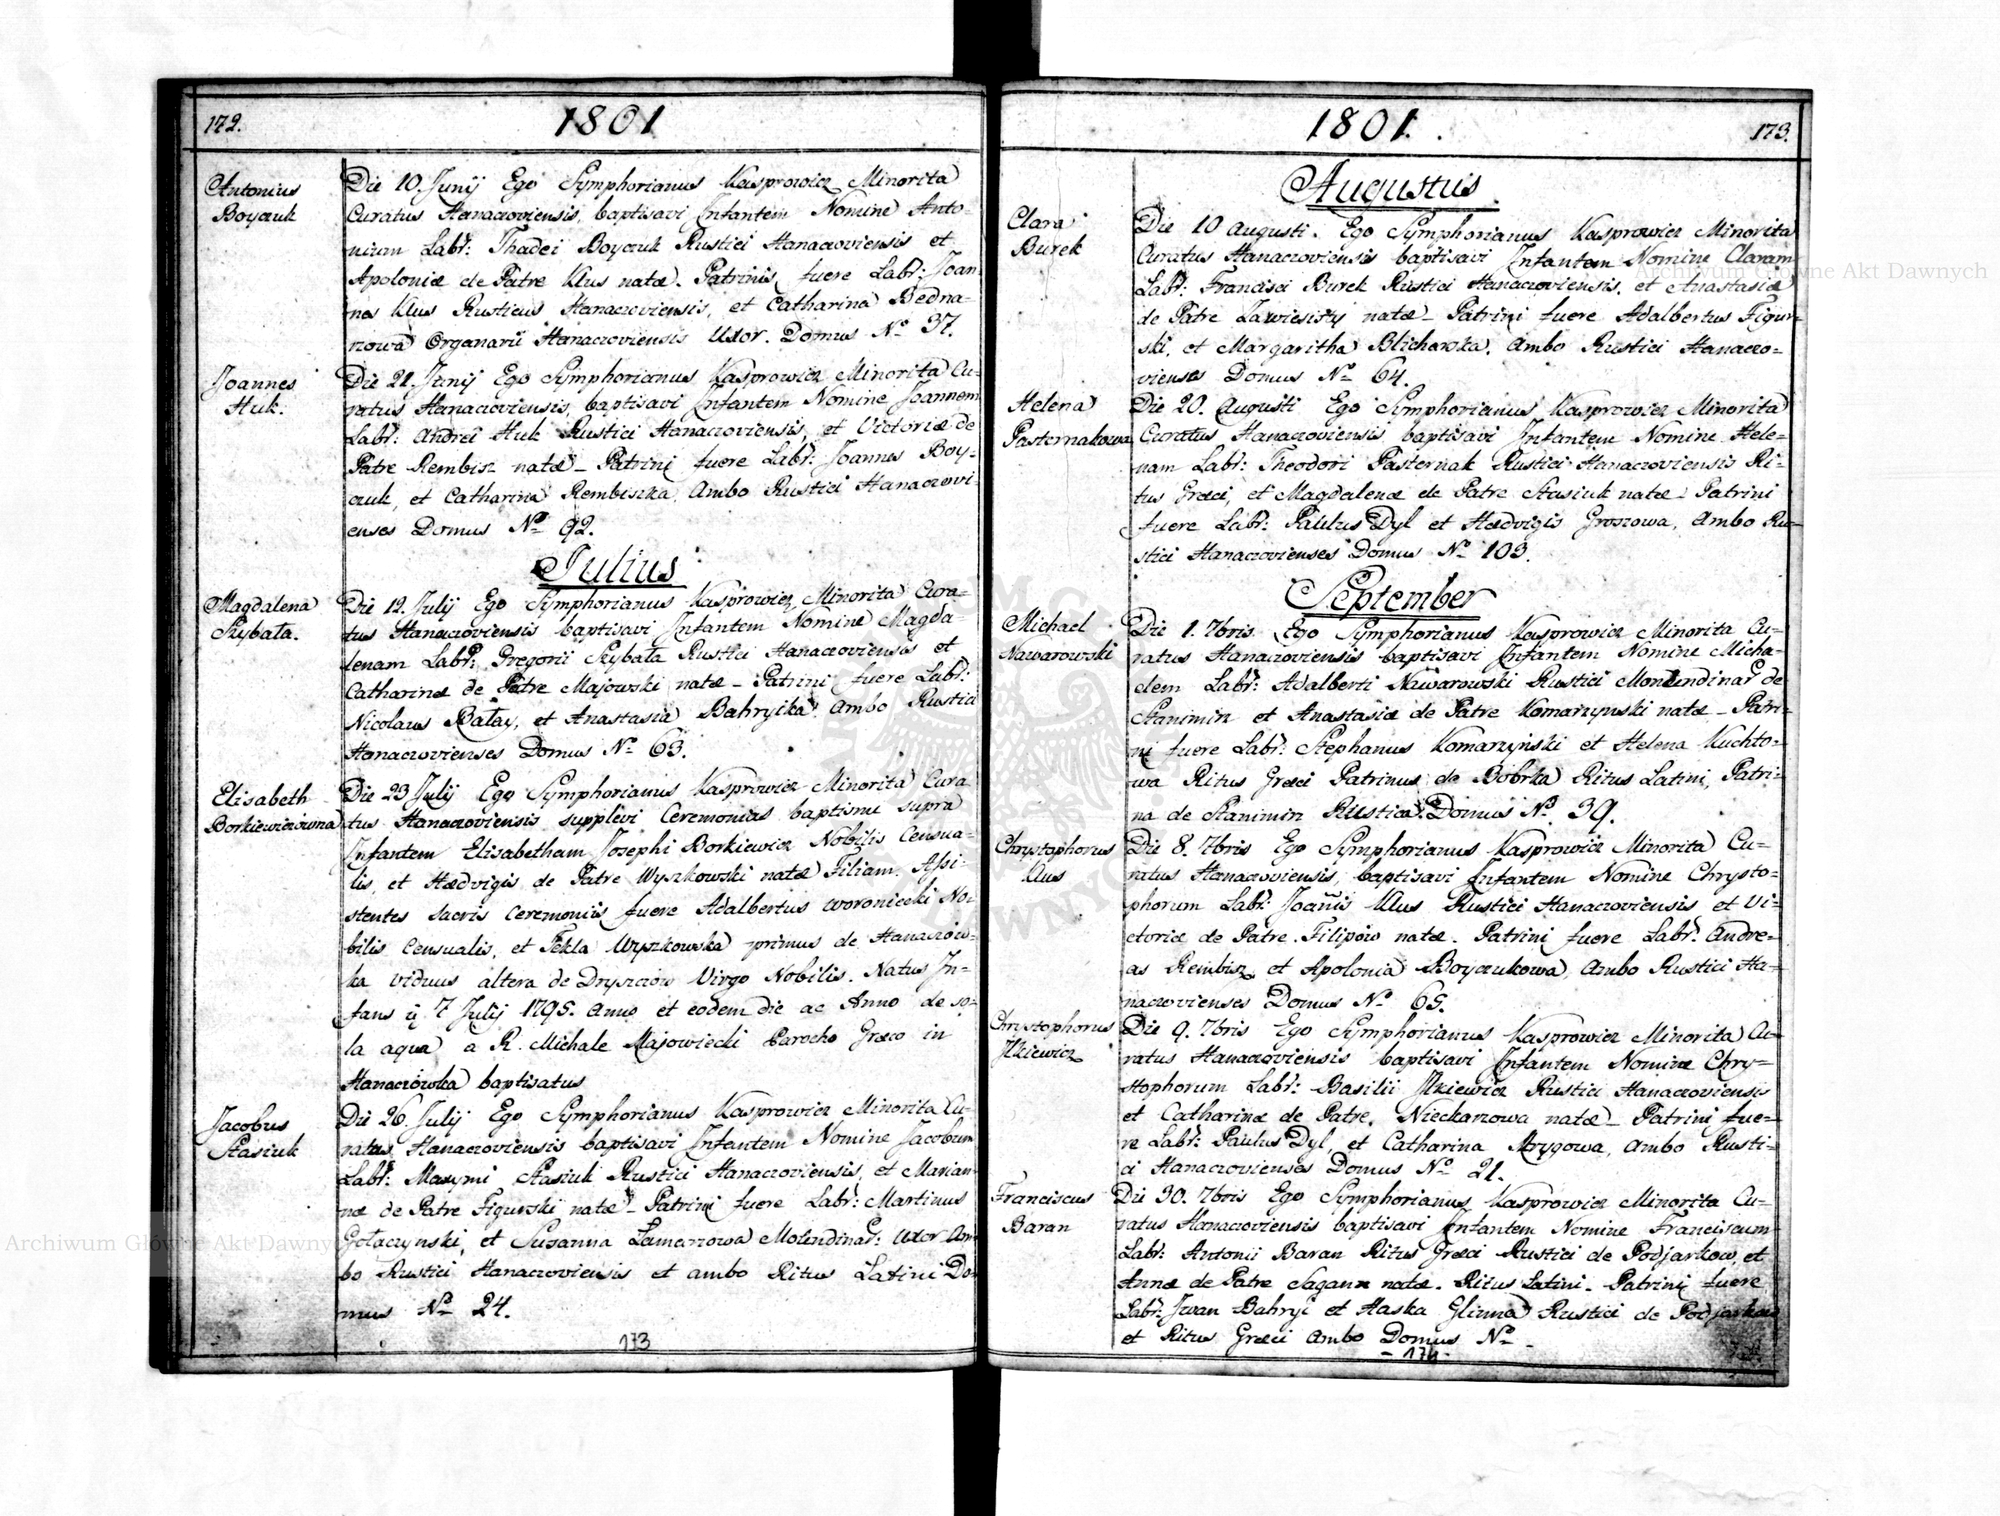 172.
1801
Antonius
Boyczuk
Die 10. Junij Ego Symphorianus Kasprowicz Minorita
Curatus Hanaczoviensis, baptisavi Infantem Nomine Anto-
nium Labr: Thadei Boyczuk Rustici Hanaczoviensis et
Apoloniæ de Patre Klus natæ. Patrinis fuere Labr: Joan
nes Klus Rusticus Hanaczoviensis, et Catharina Bedna-
rzowa Organarii Hanaczoviensis Uxor. Domus No 37.
Joannes
Huk.
Die 21. Junij Ego Symphorianus Kasprowicz Minorita Cu-
ratus Hanaczoviensis, baptisavi Infantem Nomine Joannem
Labr: Andrei Huk Rustici Hanaczoviensis, et Victoriæ de
Patre Rembisz natæ - Patrini fuere Labr: Joannes Boy-
czuk, et Catharina Rembiszka Ambo Rustici Hanaczovi-
enses Domus No 92.
Julius
Magdalena
Szybała.
Die 12. Julij Ego Symphorianus Kasprowicz Minorita Cura-
tus Hanaczoviensis baptisavi Infantem Nomine Magda-
lenam Labr: Gregorii Szybała Rustici Hanaczoviensis et
Catharinæ de Patre Majowski natæ - Patrini fuere Labr:
Nicolaus Bałay, et Anastasia Bahryika Ambo Rustici
Hanaczovienses Domus No 63.
Elisabeth
Borkiewiczówna
Die 23 Julij Ego Symphorianus Kasprowicz Minorita Cura
tus Hanaczoviensis supplevi Ceremonias baptismi supra
Infantem Elisabetham Josephi Borkiewicz Nobilis Censua-
lis, et Hædvigis de Patre Wyszkowski natæ Filiam. Assi-
stentes sacris ceremoniis fuere Adalbertus Woroniecki No-
bilis Censualis, et Tekla Wyszkowska primus de Hanaczów-
ka viduus altera de Dryszczow Virgo Nobilis. Natus In-
fans 7 Julij 1795. Anno et eodem die ac Anno de so-
la aqua a R. Michale Majowiecki Parocho Græco in
Hanaczówka baptisatus
Jacobus
Stasiuk
Die 26. Julij Ego Symphorianus Kasprowicz Minorita Cu-
ratus Hanaczoviensis baptisavi Infantem Nomine Jacobum
Labr: Maxymi Stasiuk Rustici Hanaczoviensis, et Marian
næ de Patre Figurski natæ - Patrini fuere Labr: Martinus
Gołaczynski, et Susanna Lamarzowa Molendinar: Uxor Am
bo Rustici Hanaczoviensis et ambo Ritus Latini Do-
mus No 24.
173
1801.
173.
Augustus
Clara
Burek
Die 10 Augusti. Ego Symphorianus Kasprowicz Minorita
Curatus Hanaczoviensis baptisavi Infantem Nomine Claram
Labr: Francisci Burek Rustici Hanaczoviensis, et Anastasiæ
de Patre natæ - Patrini fuere Adalbertus Figur-
ski, et Margaritha Blicharska, Ambo Rustici Hanaczo-
vienses Domus No 64.
Helena
Pasternakowa
Die 20. Augusti Ego Symphorianus Kasprowicz Minorita
Curatus Hanaczoviensis baptisavi Infantem Nomine Hele-
nam Labr: Theodori Pasternak Rustici Hanaczoviensis Ri-
tus Græci, et Magdalenæ de Patre Stasiuk natæ - Patrini
fuere Labr: Paulus Dyl et Hædvigis Groszowa, Ambo Ru-
stici Hanaczovienses Domus No 103.
September
Michael
Nawarowski
Die 1. 7bris Ego Symphorianus Kasprowicz Minorita Cu-
ratus Hanaczoviensis baptisavi Infantem Nomine Micha-
elem Labr: Adalberti Nawarowski Rustici Molendinar de
Stanimirz et Anastasiæ de Patre Komarzynski natæ - Patri-
ni fuere Labr: Stephanus Komarzyński et Helena Kuchto-
wa Ritus Græci Patrinus de Bóbrka Ritus Latini, Patri-
na de Stanimirz Rustica. Domus No 39.
Chrystophorus
Klus
Die 8. 7bris Ego Symphorianus Kasprowicz Minorita Cu-
ratus Hanaczoviensis, baptisavi Infantem Nomine Chrysto-
phorum Labr: Joañis Klus Rustici Hanaczoviensis et Vi-
ctoriæ de Patre Filipów natæ. Patrini fuere Labr: Andre-
as Rembisz et Apolonia Boyczukowa, Ambo Rustici Ha-
naczovienses Domus No 65.
Chrystophorus
Ilkiewicz
Die 9. 7bris Ego Symphorianus Kasprowicz Minorita Cu-
ratus Hanaczoviensis baptisavi Infantem Nomine Chry-
stophorum Labr: Basilii Ilkiewicz Rustici Hanaczoviensis
et Catharinæ de Patre. Nieckarzowa natæ - Patrini fue-
re Labr: Paulus Dyl, et Catharina Mrygowa, Ambo Rusti-
ci Hanaczovienses Domus No 21.
Franciscus
Baran
Die 30. 7bris Ego Symphorianus Kasprowicz Minorita Cu-
ratus Hanaczoviensis baptisavi Infantem Nomine Franciscum
Labr: Antonii Baran Ritus Græci Rustici de Podjarkow, et
Annæ de Patre Sagann natæ. Ritus Latini. Patrini fuere
Labr: Iwan Bahryi et Haska Glinna Rustici de Podjarkow
et Ritus Græci Ambo Domus No -
- 174 -
Archiwum Główne Akt Dawnych
Archiwum Główne Akt Dawnych